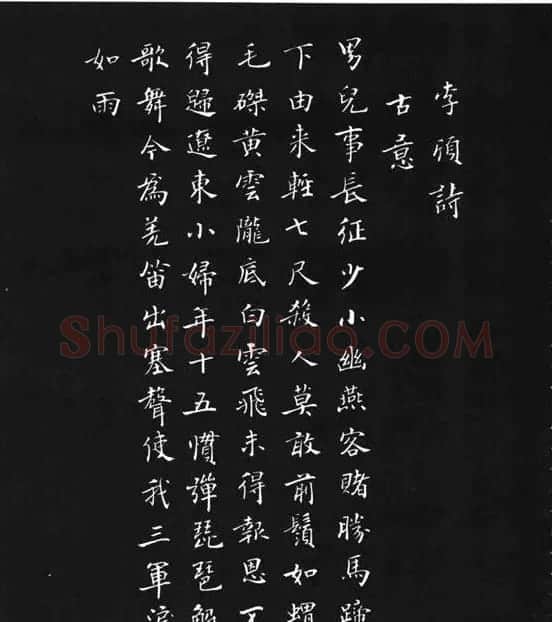 李頎詩
古意
男兒事長征少小幽燕客賭勝馬蹄
下由来輕七尺殺人莫敢前鬚如蝟
毛磔黃雲隴底白雲飛未得報恩不
得歸遼東小婦年十五慣彈琵琶解
歌舞今為羌笛出塞聲使我三軍淚
如雨
Shufaziliao.COM